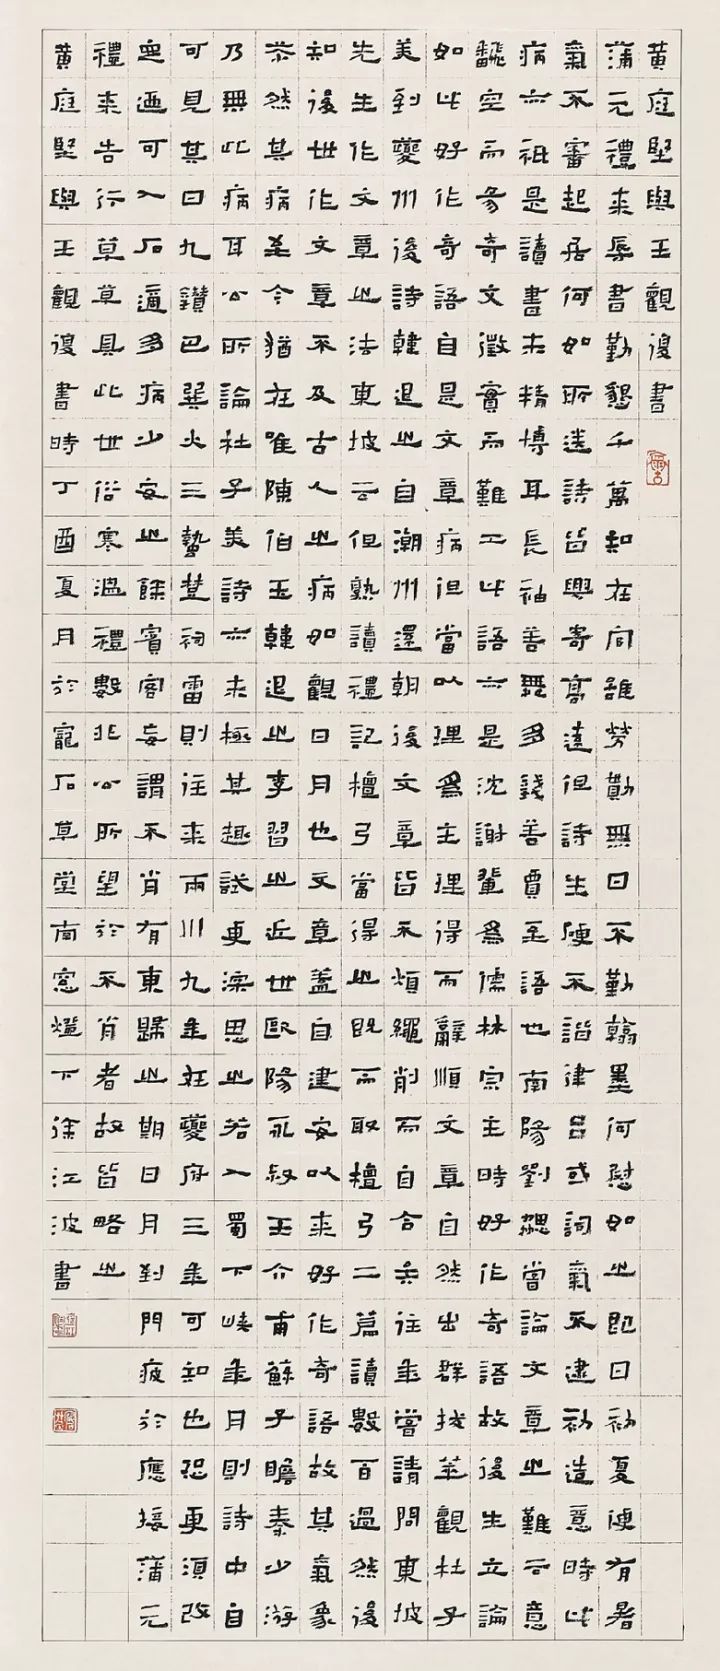 黃庭堅與王觀復書
蒲元禮來辱書勤懇千萬知在向雖勞勩無日不勤翰墨何慰如之即日初夏便有暑
氣不審起居何如所送詩皆興寄高遠但詩生硬不諧律呂或詞氣不逮初造意時此
病亦祗是讀書未精博耳長袖善舞多錢善賈至語也南陽劉勰嘗論文章之難云意
翻空而易奇文徵實而難工此語亦是沈謝輩爲儒林宗主時好作奇語故後生立論
如此好作奇語自是文章病但當以理爲主理得而辭順文章自然出群拔萃觀杜子
美到夔州後詩韓退之自潮州還朝後文章皆不煩繩削而自合矣往年嘗請問東坡
先生作文章之法東坡云但熟讀禮記檀弓當得之既而取檀弓二篇讀數百過然後
知後世作文章不及古人之病如觀日月也文章蓋自建安以來好作奇語故其氣象
苶然其病至今猶在唯陳伯玉韓退之李習之近世歐陽永叔王介甫蘇子瞻秦少游
乃無此病耳公所論杜子美詩亦未極其趣試更深思之若入蜀下峽年月則詩中自
可見其曰九鑽巴巽火三蟄楚祠雷則往來兩川九年在夔府三年可知也恐更須改
定迺可入石適多病少安之餘賓客妄謂不肖有東歸之期日月到門疲於應接蒲元
禮來告行草草具此世俗寒溫禮數非公所望於不肖者故皆略之
黃庭堅與王觀復書時丁酉夏月於寵石草堂南窗燈下徐江波書